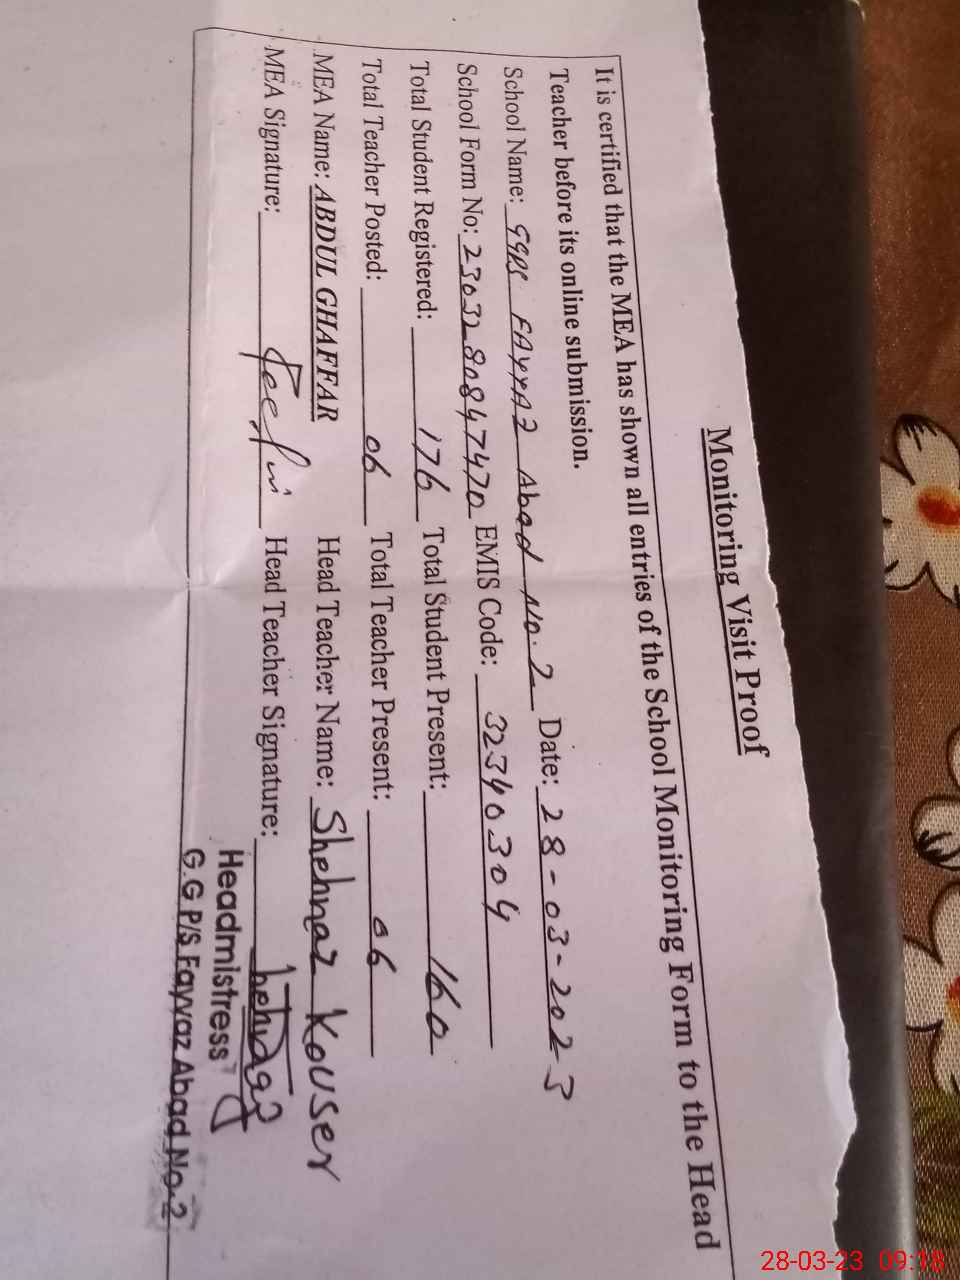 Monitoring Visit Proof
It is certified that the MEA has shown all entries of the School Monitoring Form to the Head
Teacher before its online submission.
School Name: GGPS FAYYAZ Abad No. 2 Date: 28-03-2023
School Form No: 2303280847470 EMIS Code: 32340304
Total Student Registered: 176 Total Student Present: 160
Total Teacher Posted: 06 Total Teacher Present: 06
MEA Name: ABDUL GHAFFAR Head Teacher Name: Shehnaz Kouser
MEA Signature: Head Teacher Signature:
Headmistress
G.G P/S Fayyaz Abad No.2
28-03-23 09:18